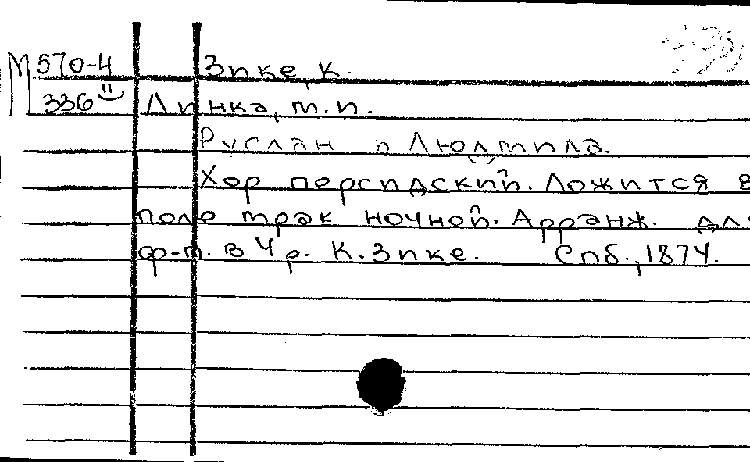 М 570-4 Зпке, К.
336 Глинка, М.И.
Руслан и Людмила.
Хор персидский. Ложится в
поле мрак ночной. Арранж. для
ф-п. в 4 р. К. Зпке. Спб., 1874.